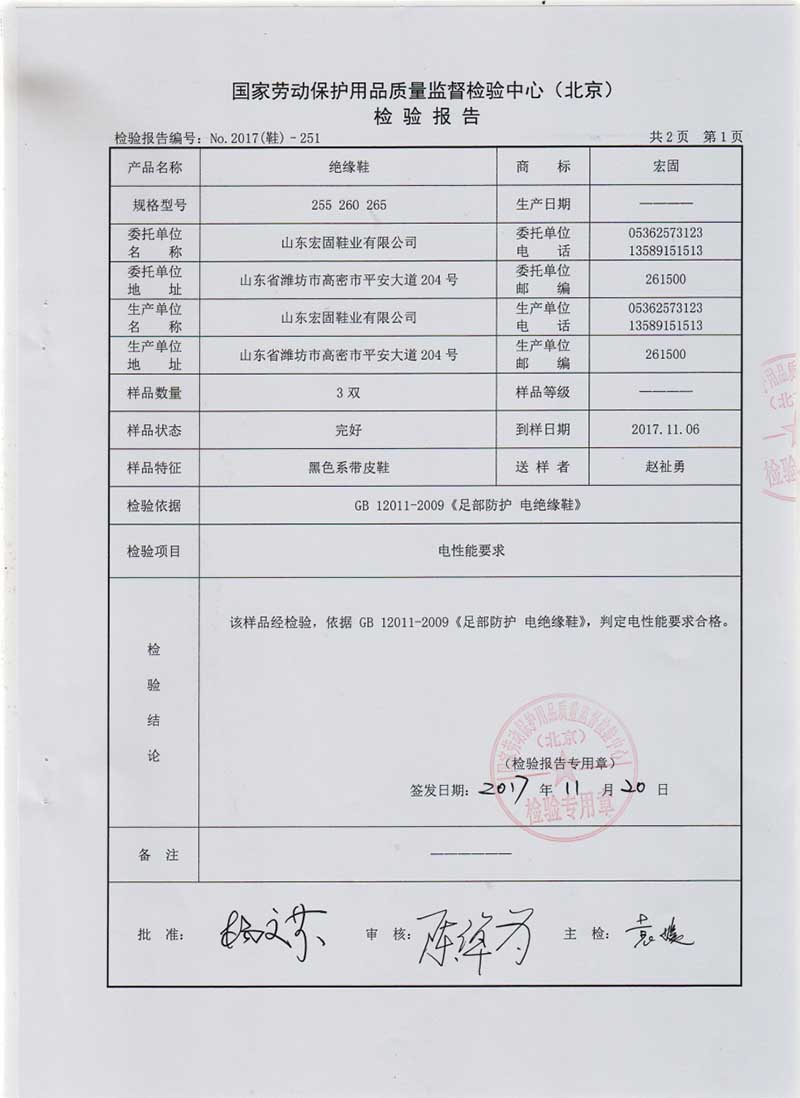 国家劳动保护用品质量监督检验中心（北京）
检 验 报 告
检验报告编号：No.2017(鞋)-251 共2页 第1页
产品名称 绝缘鞋 商 标 宏固
规格型号 255 260 265 生产日期 ————
委托单位名 称 山东宏固鞋业有限公司 委托单位电 话 05362573123 13589151513
委托单位地 址 山东省潍坊市高密市平安大道204号 委托单位邮 编 261500
生产单位名 称 山东宏固鞋业有限公司 生产单位电 话 05362573123 13589151513
生产单位地 址 山东省潍坊市高密市平安大道204号 生产单位邮 编 261500
样品数量 3双 样品等级 ————
样品状态 完好 到样日期 2017.11.06
样品特征 黑色系带皮鞋 送 样 者 赵祉勇
检验依据 GB 12011-2009《足部防护 电绝缘鞋》
检验项目 电性能要求
检验结论 该样品经检验，依据 GB 12011-2009《足部防护 电绝缘鞋》，判定电性能要求合格。
国家劳动保护用品质量监督检验中心
（北京）
（检验报告专用章）
签发日期：2017 年 11 月 20 日
检验专用章
备 注 ——————
批 准： 杨文芬 审 核： 主 检： 袁媛